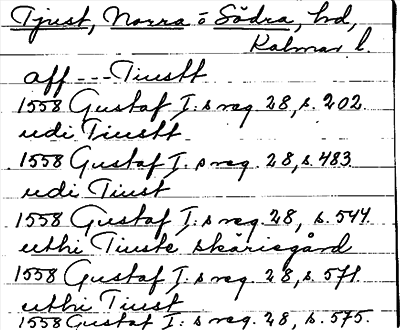 Tjust, Norra o Södra, hd,
Kalmar l.
aff --- Tiustt
1558 Gustaf I:s reg. 28, s. 202.
udi Tiustt
1558 Gustaf I:s reg. 28, s. 483
udi Tiust
1558 Gustaf I:s reg. 28, s. 544.
uthi Tiuste skärisgård
1558 Gustaf I:s reg. 28, s. 571.
uthi Tiust
1558 Gustaf I:s reg. 28, s. 575.